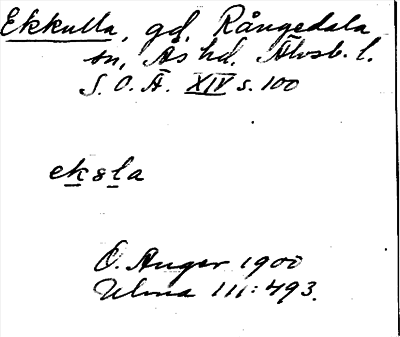 Ekkulla, gd. Rångedala
sn, Ås hd. Älvsb. l.
S. O. Ä. XIV s. 100
eksla
O. Auger 1900
Ulma 111:493.